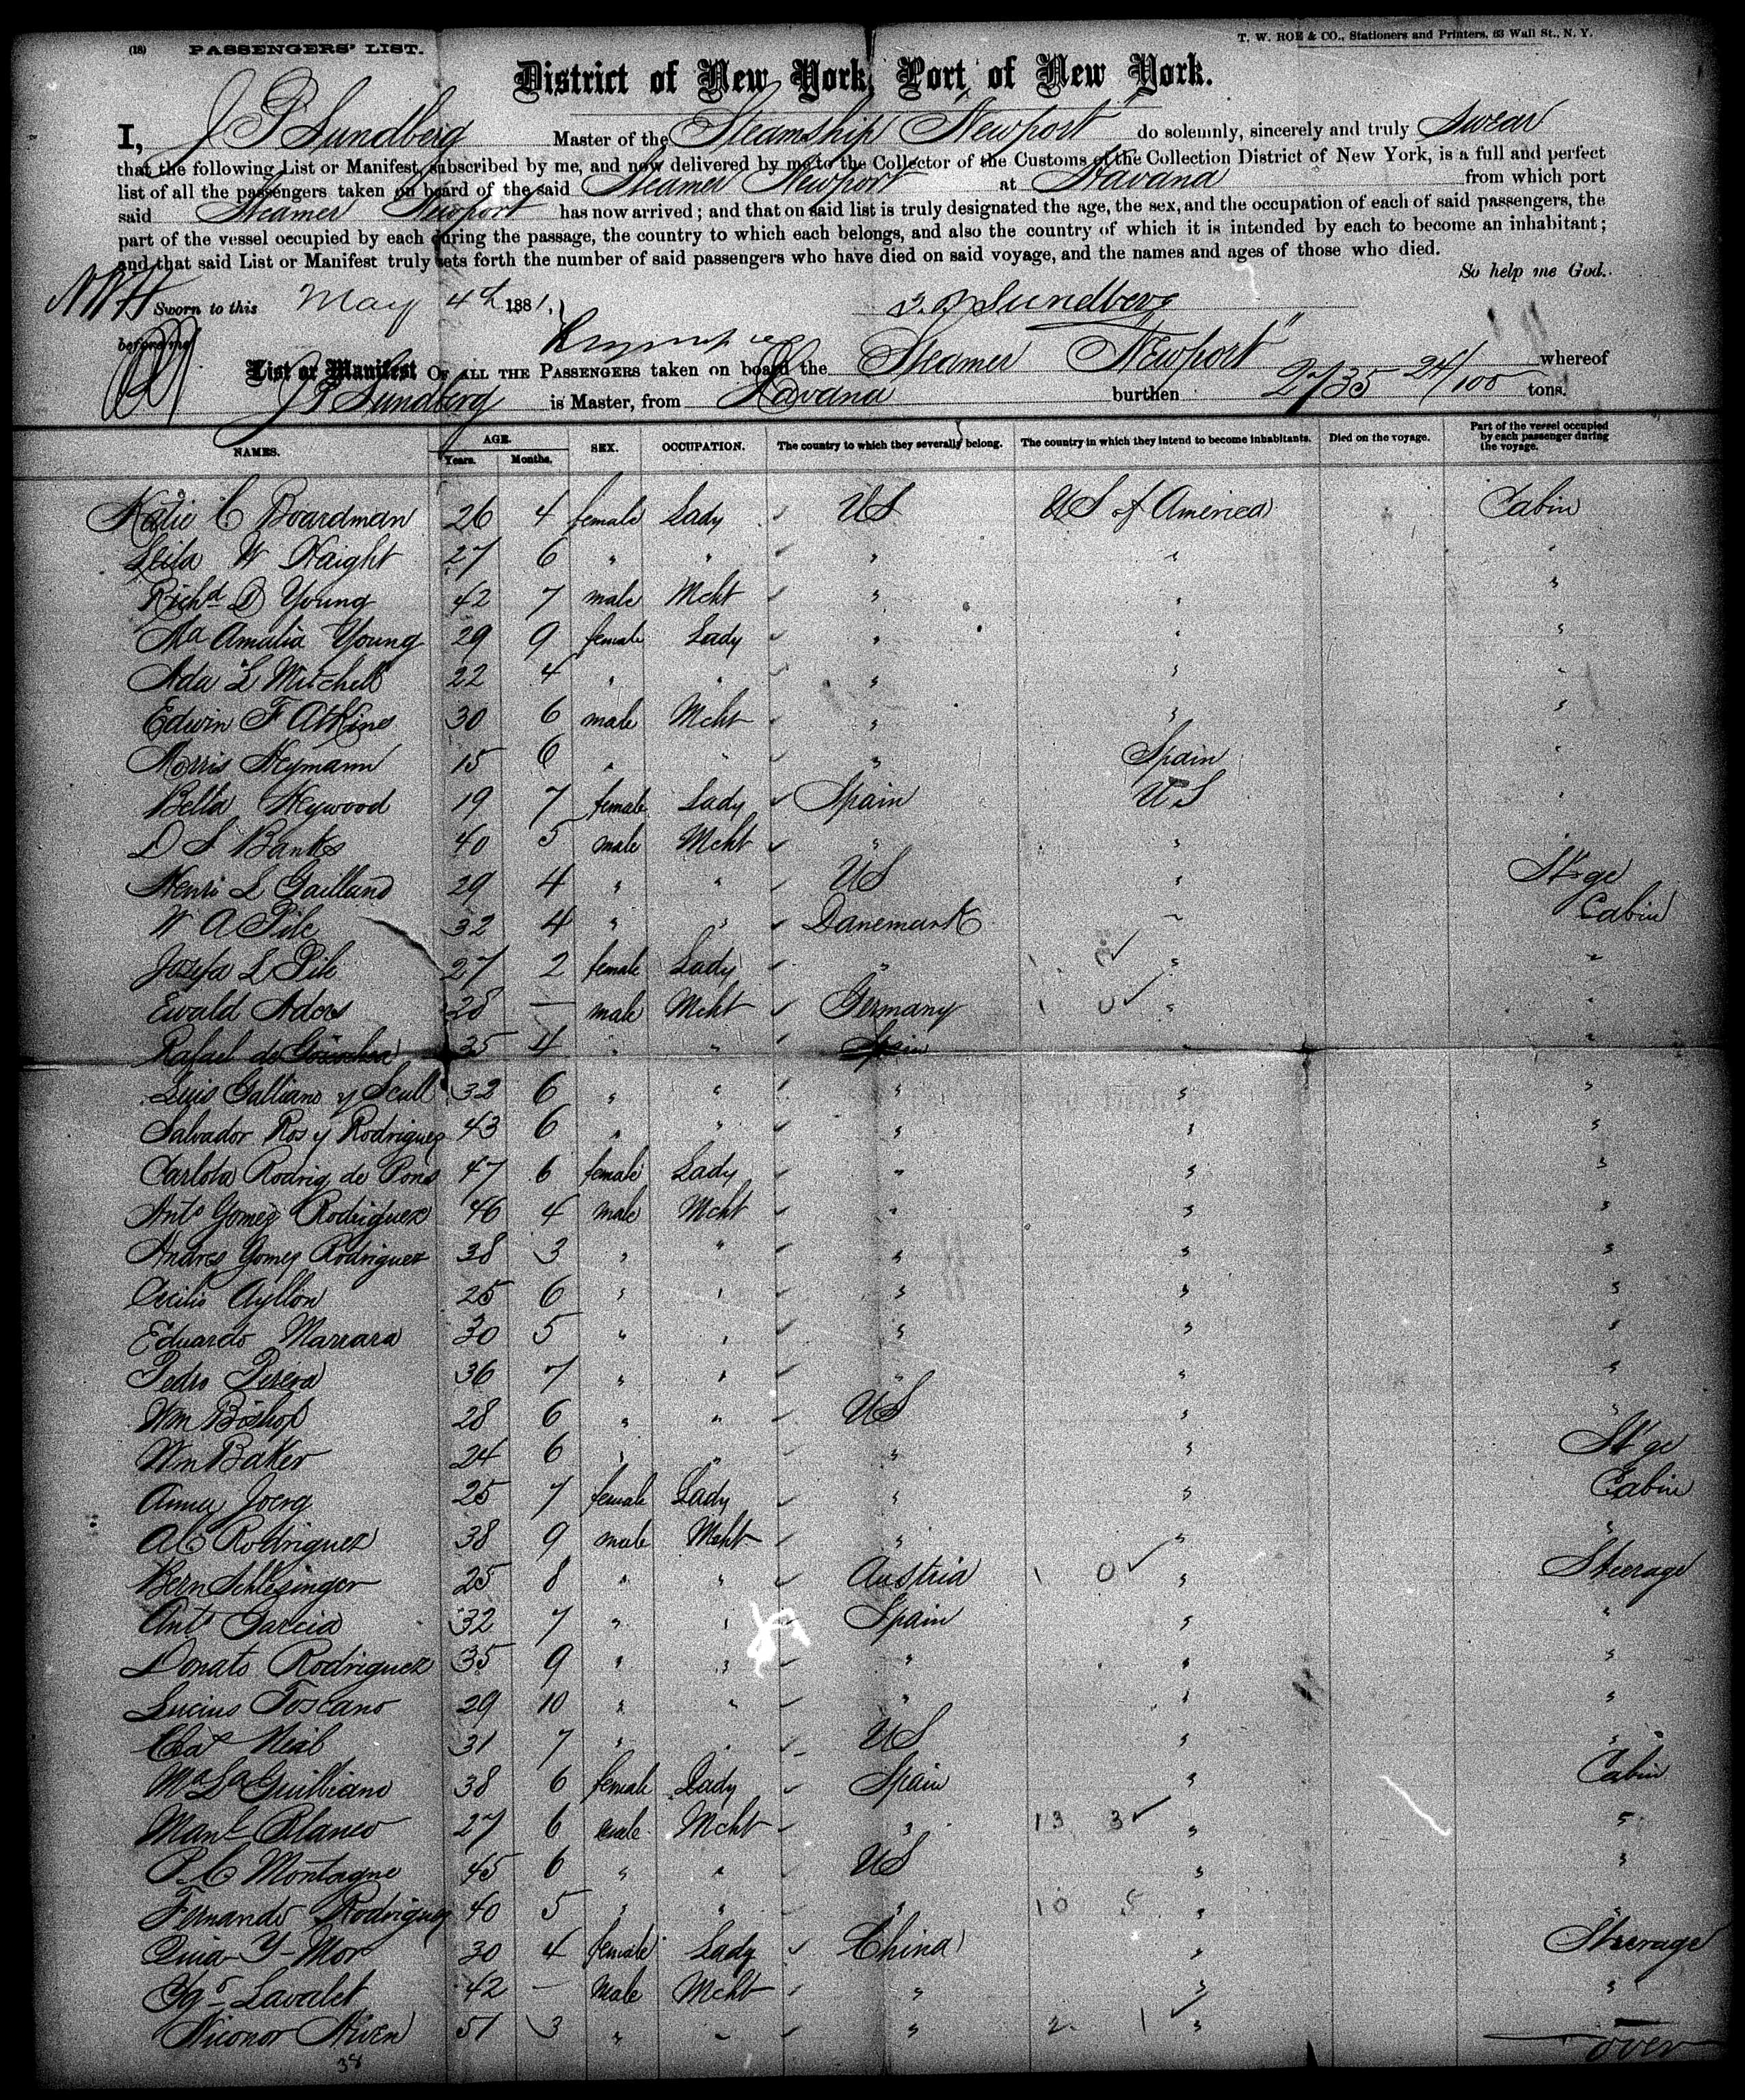 (18) PASSENGERS' LIST.
T. W. ROE & CO., Stationers and Printers, 63 Wall St., N. Y.
District of New York, Port of New York.
I, J P Sundberg Master of the Steamship "Newport" do solemnly, sincerely and truly Swear
that the following List or Manifest, subscribed by me, and now delivered by me to the Collector of the Customs of the Collection District of New York, is a full and perfect
list of all the passengers taken on board of the said Steamer Newport at Havana from which port
said Steamer Newport has now arrived; and that on said list is truly designated the age, the sex, and the occupation of each of said passengers, the
part of the vessel occupied by each during the passage, the country to which each belongs, and also the country of which it is intended by each to become an inhabitant;
and that said List or Manifest truly sets forth the number of said passengers who have died on said voyage, and the names and ages of those who died.
So help me God.
Sworn to this May 4th 1881, J. P. Sundberg
before me
List or Manifest OF ALL THE PASSENGERS taken on board the Steamer "Newport" whereof
J P Sundberg is Master, from Havana burthen 2735 24/100 tons.
NAMES. AGE. Years. Months. SEX. OCCUPATION. The country to which they severally belong. The country in which they intend to become inhabitants. Died on the voyage. Part of the vessel occupied by each passenger during the voyage.
Katie C Boardman 26 4 female Lady US US of America Cabin
Leila W Haight 27 6 " " " " "
Richd D Young 42 7 male Mcht " " "
Ma Amalia Young 29 9 female Lady " " "
Ada L Mitchell 22 4 " " " " "
Edwin F Atkins 30 6 male Mcht " " "
Morris Heymann 15 6 " " " Spain "
Bella Heywood 19 7 female Lady Spain US "
D S Banks 40 5 male Mcht " " "
Henri L Gailland 29 4 " " US " St'ge
W A Pile 32 4 " " Danemark " Cabin
Josefa L Pile 27 2 female Lady " " "
Ewald Aders 28 — male Mcht Germany " "
Rafael de 35 4 " " Spain " "
Luis Galliano y Scull 32 6 " " " " "
Salvador Ros y Rodriguez 43 6 " " " " "
Carlota Rodrig de Pons 47 6 female Lady " " "
Anto Gomez Rodriguez 46 4 male Mcht " " "
Andres Gomez Rodriguez 38 3 " " " " "
Cecilio Ayllon 25 6 " " " " "
Eduardo Marrara 30 5 " " " " "
Pedro 36 7 " " " " "
Wm Bishop 28 6 " " US " "
Wm Baker 24 6 " " " " St'ge
Anna Joerg 25 7 female Lady " " Cabin
A C Rodriguez 38 9 male Mcht " " "
Bern Schlesinger 25 8 " " Austria " Steerage
Anto Garcia 32 7 " " Spain " "
Donato Rodriguez 35 9 " " " " "
Lucius Toscano 29 10 " " " " "
31 7 " " US " "
38 6 female Lady Spain " Cabin
Manl Blanco 27 6 male Mcht " 13 3 " "
P. C Montagne 45 6 " " US " "
Fernando Rodriguez 40 5 " " " 10 5 " "
30 4 female Lady China " Steerage
Lavalet 42 — Male Mcht " " "
Niconor 51 3 " " " 2 1 "
38
over